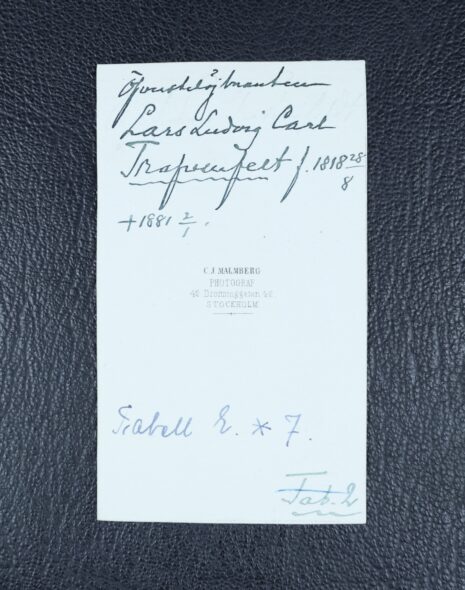 Öfverstelöjtnanten
Lars Ludvig Carl
Trafvenfelt f. 1818 28/8
+ 1881 2/1.
C. J. MALMBERG
PHOTOGRAF
42 Drottninggatan 42
STOCKHOLM
Tabell E. * 7.
Tab. 2